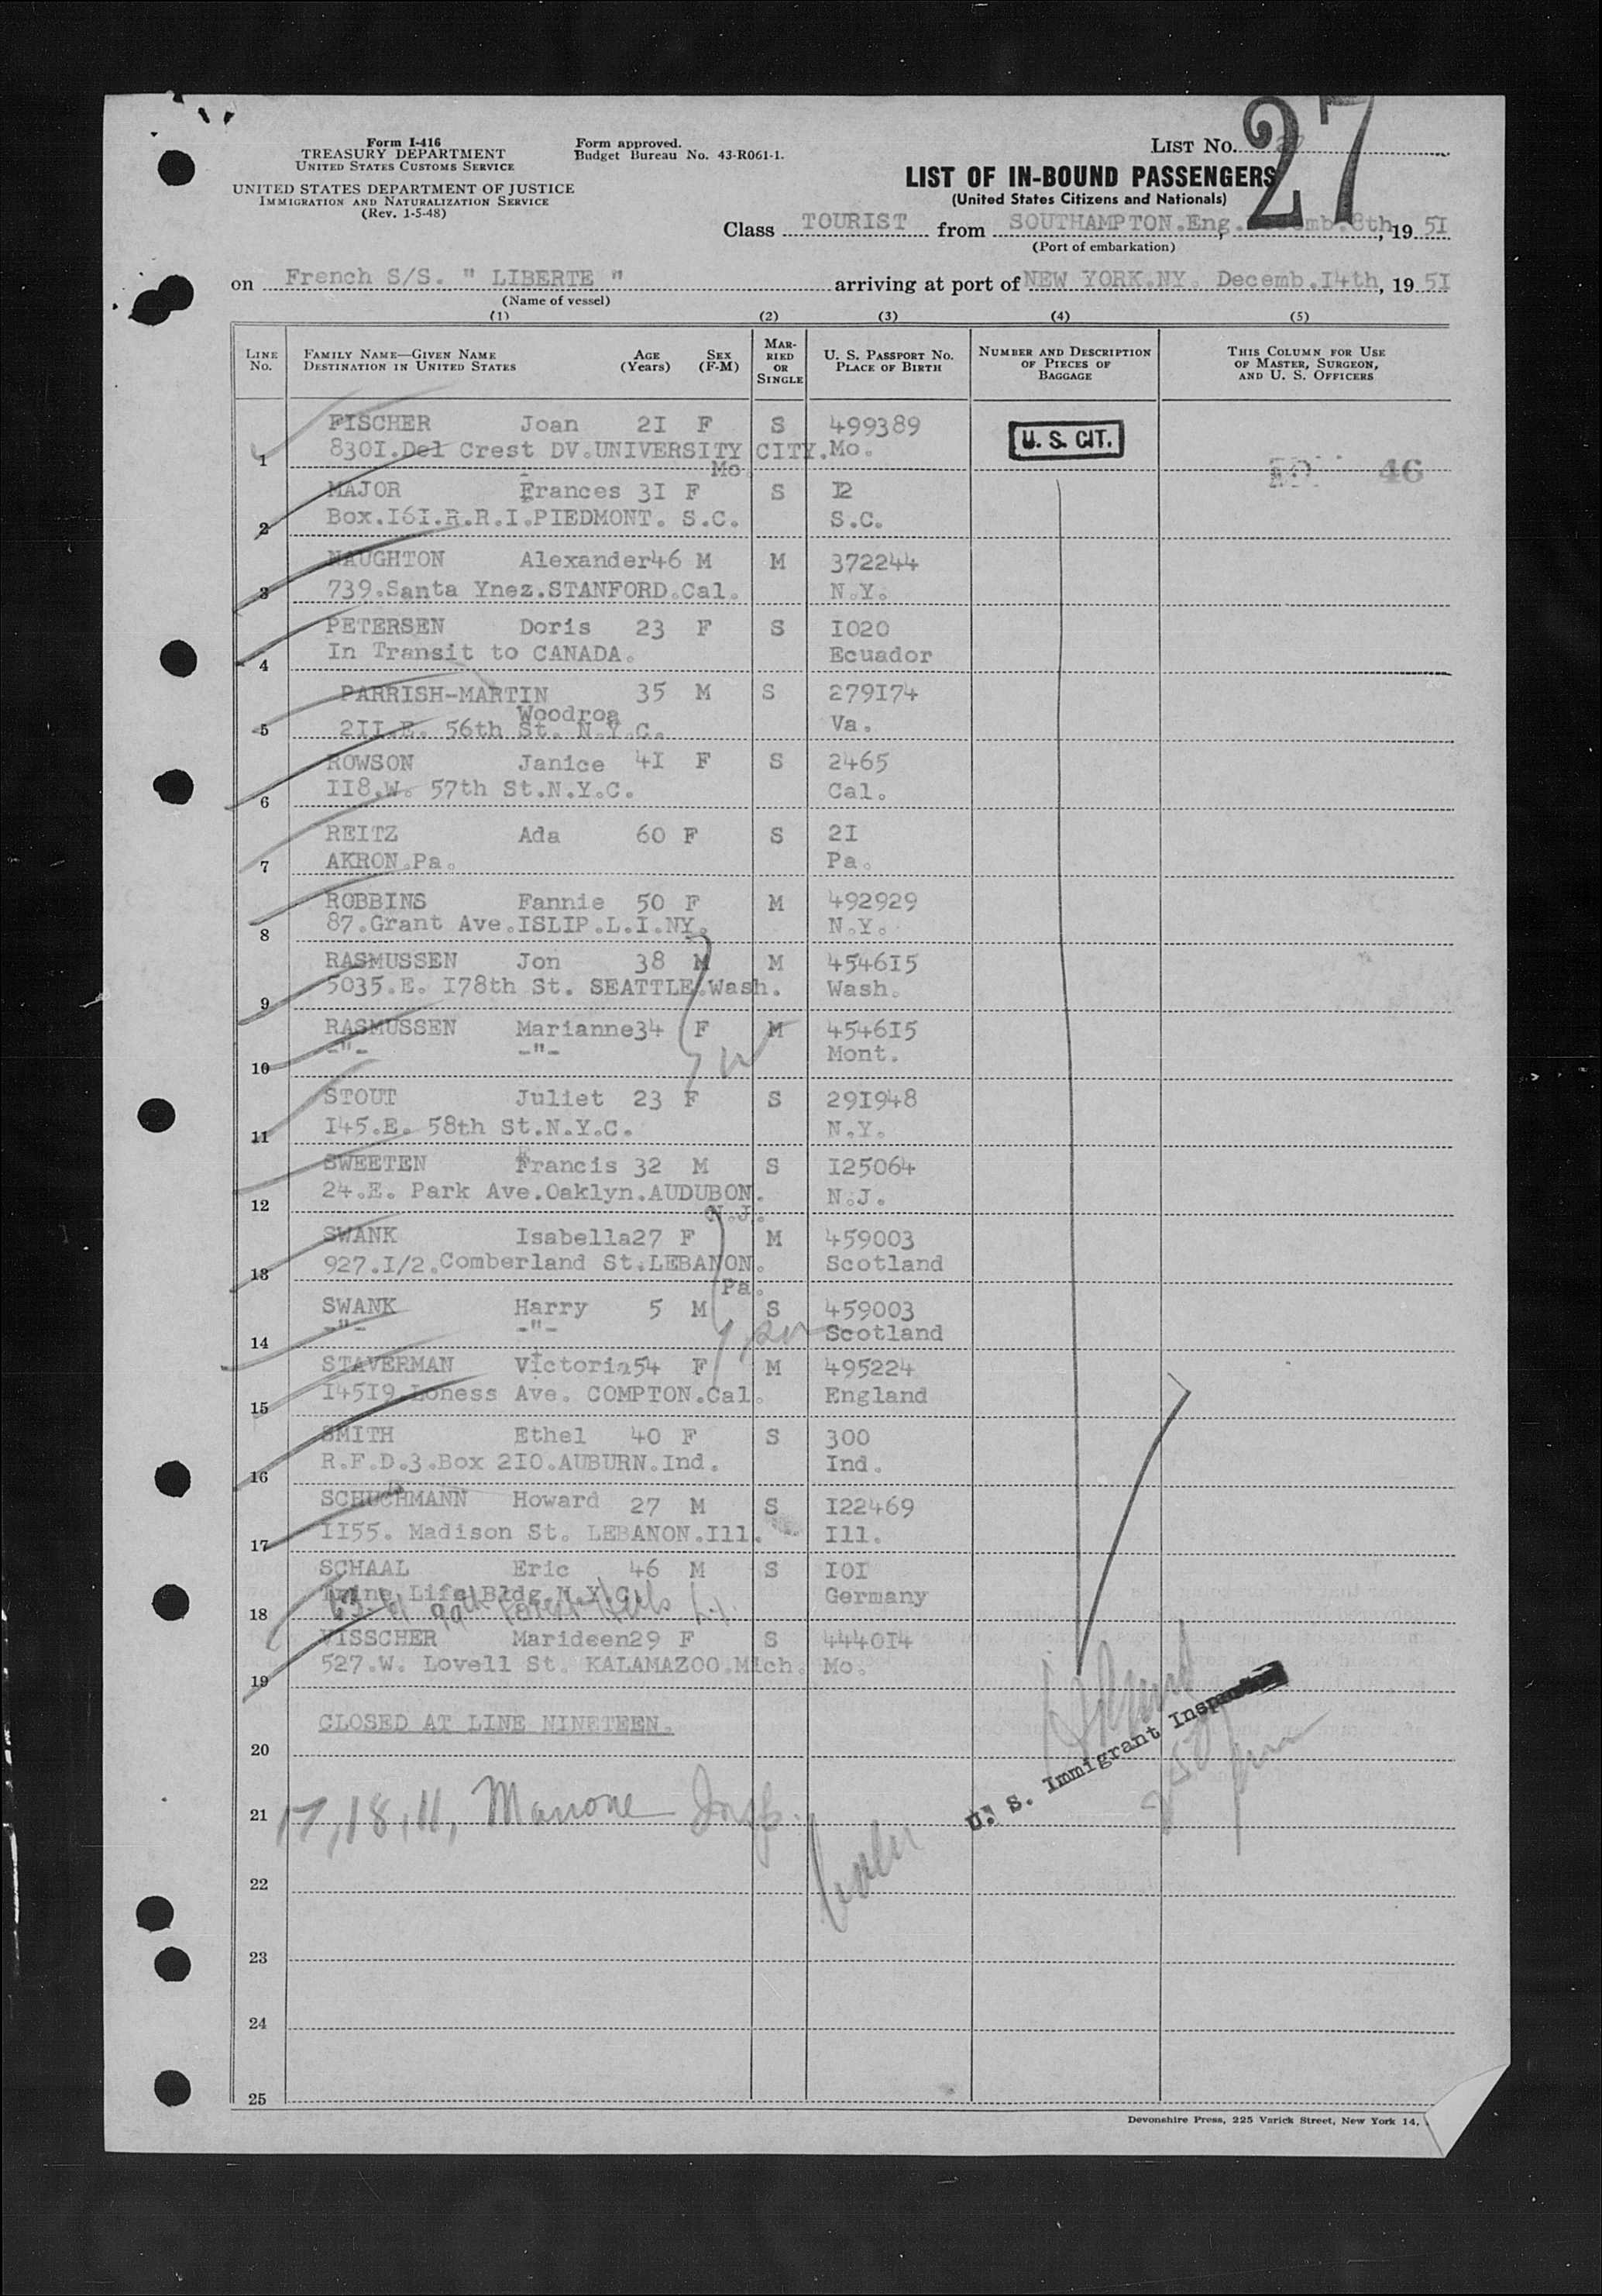 Form I-416
TREASURY DEPARTMENT
UNITED STATES CUSTOMS SERVICE
UNITED STATES DEPARTMENT OF JUSTICE
IMMIGRATION AND NATURALIZATION SERVICE
(Rev. 1-5-48)
Form approved.
Budget Bureau No. 43-R061-1.
LIST No.
27
LIST OF IN-BOUND PASSENGERS
(United States Citizens and Nationals)
Class TOURIST from SOUTHAMPTON.Eng. mb.8th, 19 51
(Port of embarkation)
on French S/S. " LIBERTE " arriving at port of NEW YORK.NY. Decemb.I4th, 19 51
(Name of vessel)
(1) (2) (3) (4) (5)
LINE No. FAMILY NAME—GIVEN NAME DESTINATION IN UNITED STATES AGE (Years) SEX (F-M) MARRIED OR SINGLE U. S. PASSPORT No. PLACE OF BIRTH NUMBER AND DESCRIPTION OF PIECES OF BAGGAGE THIS COLUMN FOR USE OF MASTER, SURGEON, AND U. S. OFFICERS
FISCHER Joan 2I F S 499389
U. S. CIT.
1 830I.Del Crest DV.UNIVERSITY CITY.Mo.
Mo
46
MAJOR Frances 3I F S I2
2 Box.I6I.R.R.I.PIEDMONT. S.C. S.C.
NAUGHTON Alexander46 M M 372244
3 739.Santa Ynez.STANFORD.Cal. N.Y.
PETERSEN Doris 23 F S I020
4 In Transit to CANADA. Ecuador
PARRISH-MARTIN 35 M S 279I74
Woodroa
5 2II.E. 56th St. N.Y.C. Va.
ROWSON Janice 4I F S 2465
6 II8.W. 57th St.N.Y.C. Cal.
REITZ Ada 60 F S 2I
7 AKRON.Pa. Pa.
ROBBINS Fannie 50 F M 492929
8 87.Grant Ave.ISLIP.L.I.NY. N.Y.
RASMUSSEN Jon 38 M M 4546I5
9 5035.E. I78th St. SEATTLE.Wash. Wash.
RASMUSSEN Marianne34 F M 4546I5
10 -"- -"- Mont.
STOUT Juliet 23 F S 29I948
11 I45.E. 58th St.N.Y.C. N.Y.
SWEETEN Francis 32 M S I25064
12 24.E. Park Ave.Oaklyn.AUDUBON. N.J.
N.J.
SWANK Isabella27 F M 459003
13 927.I/2.Comberland St.LEBANON. Scotland
Pa.
SWANK Harry 5 M S 459003
14 -"- -"- Scotland
STAVERMAN Victoria54 F M 495224
15 I45I9.Loness Ave. COMPTON.Cal. England
SMITH Ethel 40 F S 300
16 R.F.D.3.Box 2I0.AUBURN.Ind. Ind.
SCHUCHMANN Howard 27 M S I22469
17 II55. Madison St. LEBANON.Ill. Ill.
SCHAAL Eric 46 M S I0I
18 Life Bldg.N.Y.C. Germany
VISSCHER Marideen29 F S 4440I4
19 527.W. Lovell St. KALAMAZOO.Mich. Mo.
CLOSED AT LINE NINETEEN.
20
U. S. Immigrant Inspector
21 17, 18, 11, Marrone Insp.
22
23
24
25
Devonshire Press, 225 Varick Street, New York 14,